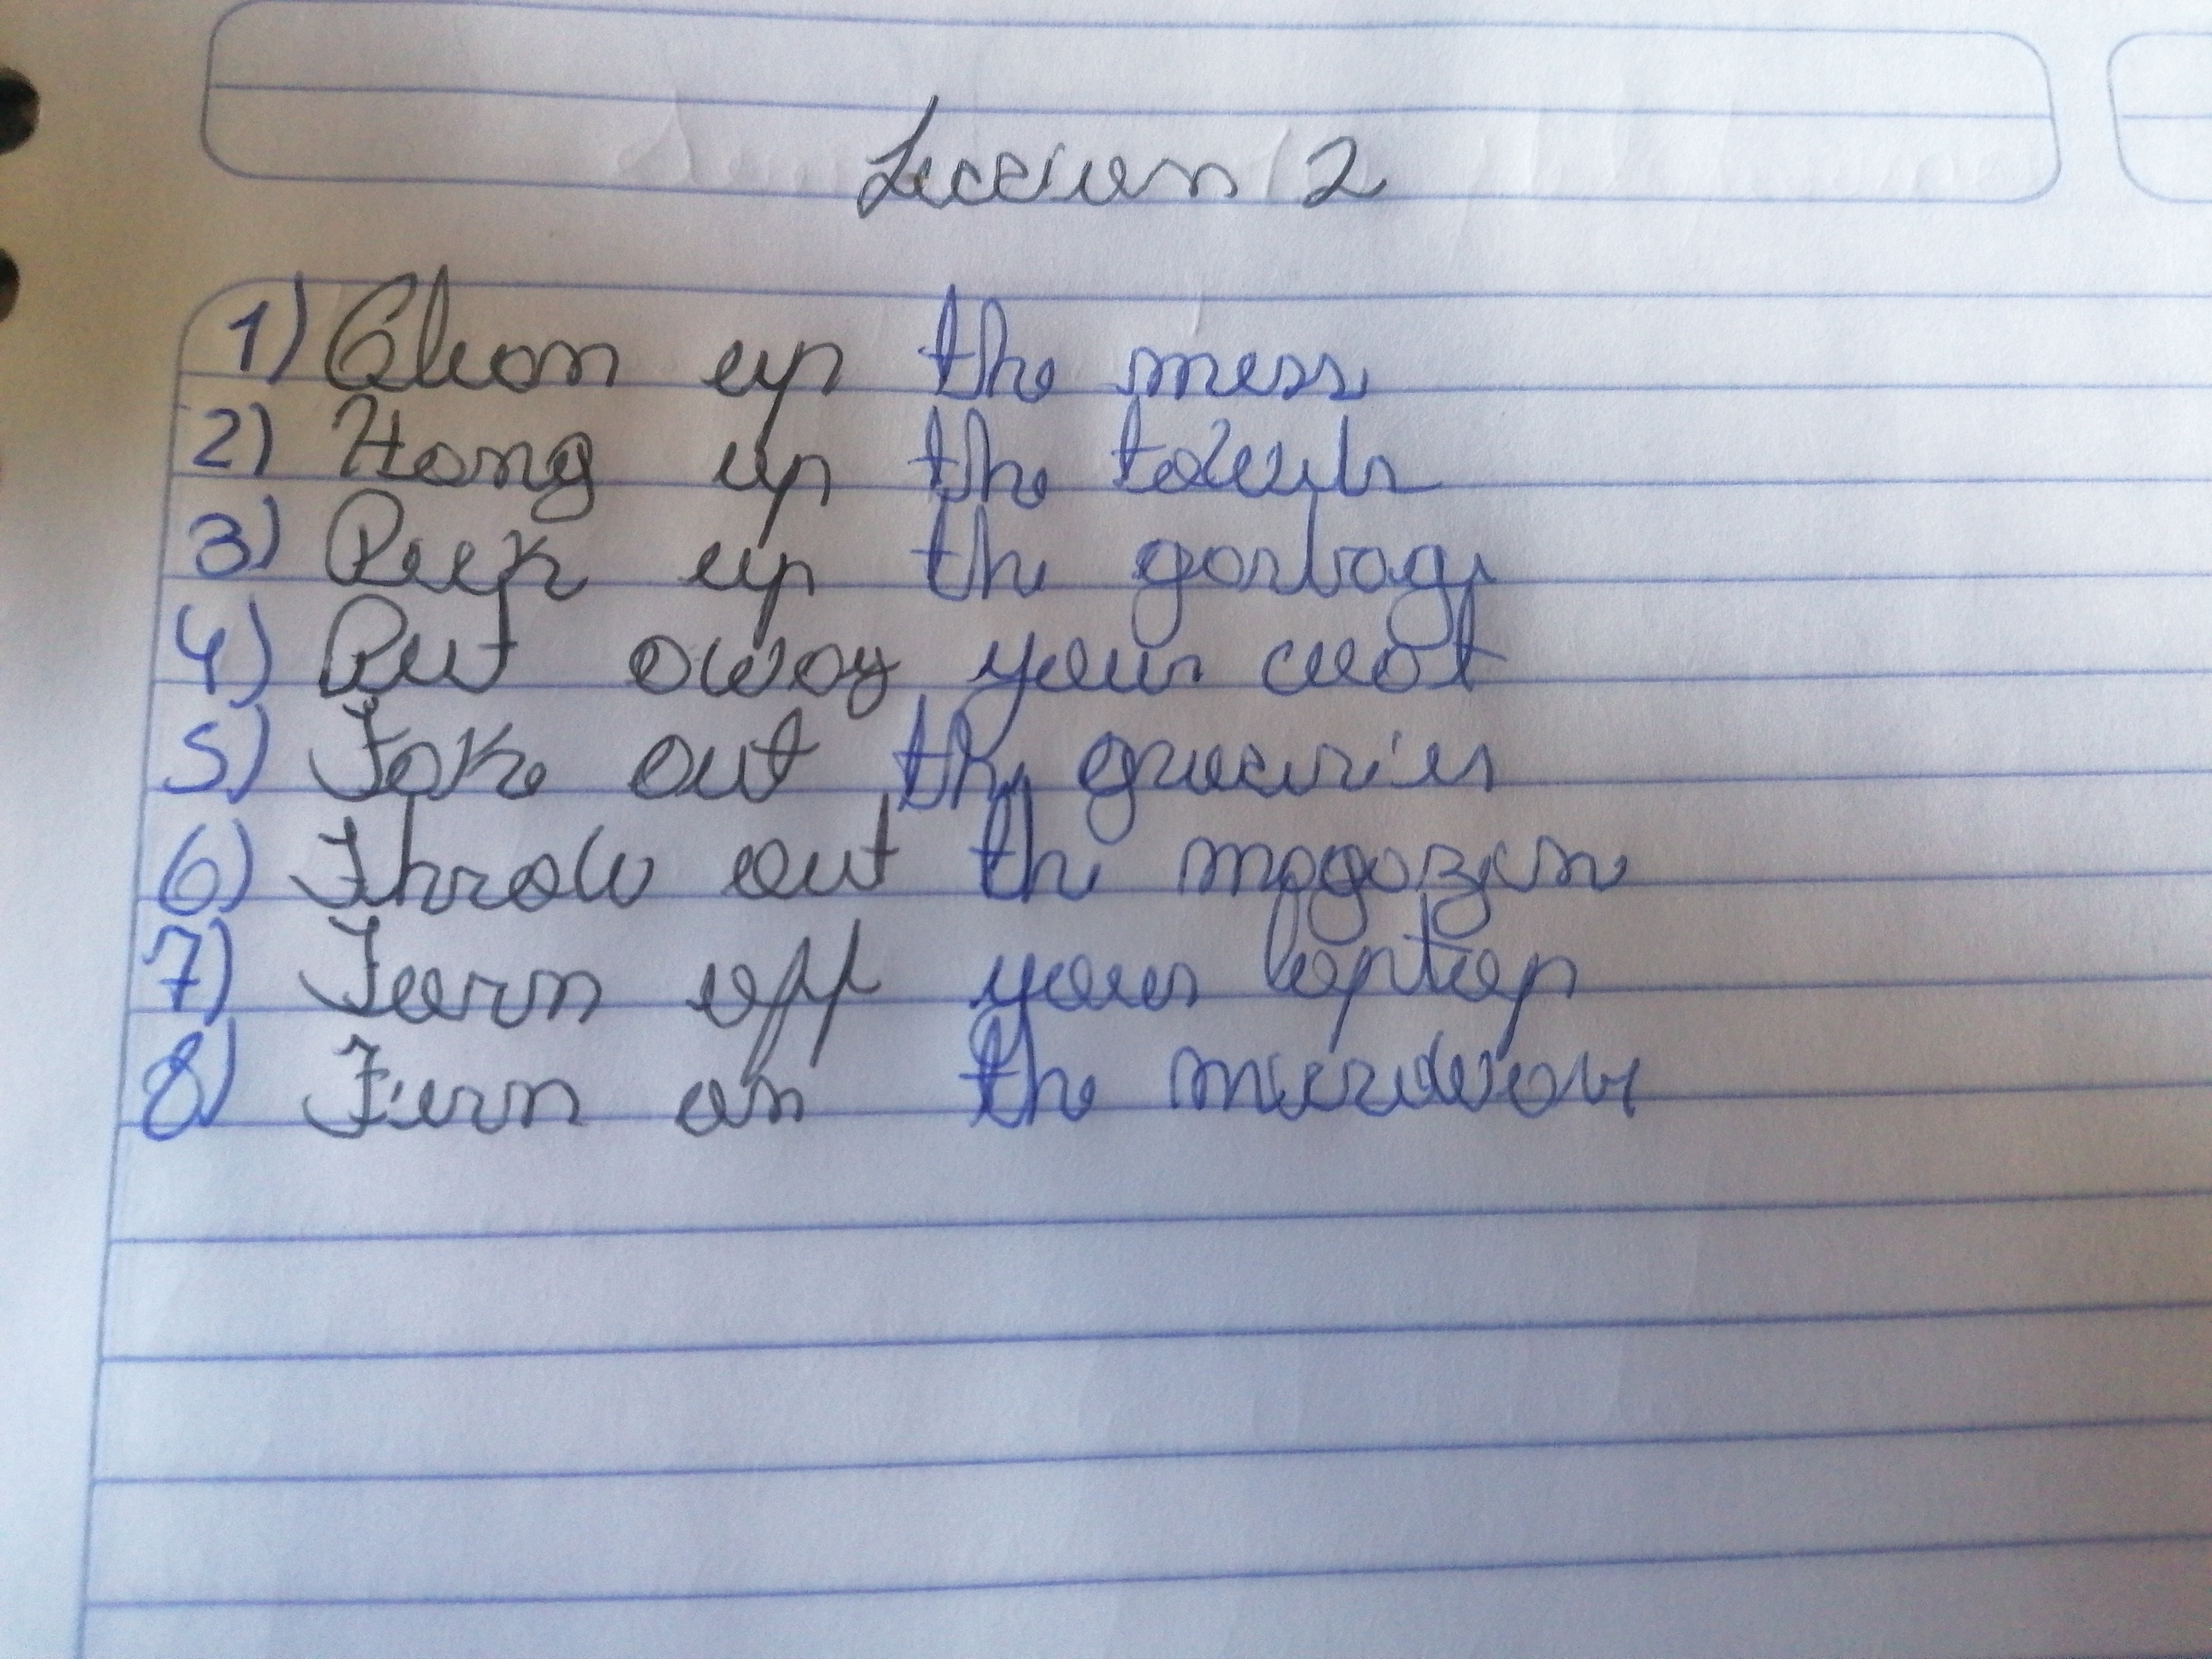 Leccion 2
1) Clean up the mess
2) Hang up the towels
3) Peek up the garbage
4) Put away your coat
5) Take out the groceries
6) Throw out the magazine
7) Turn off your laptop
8) Turn on the microwave